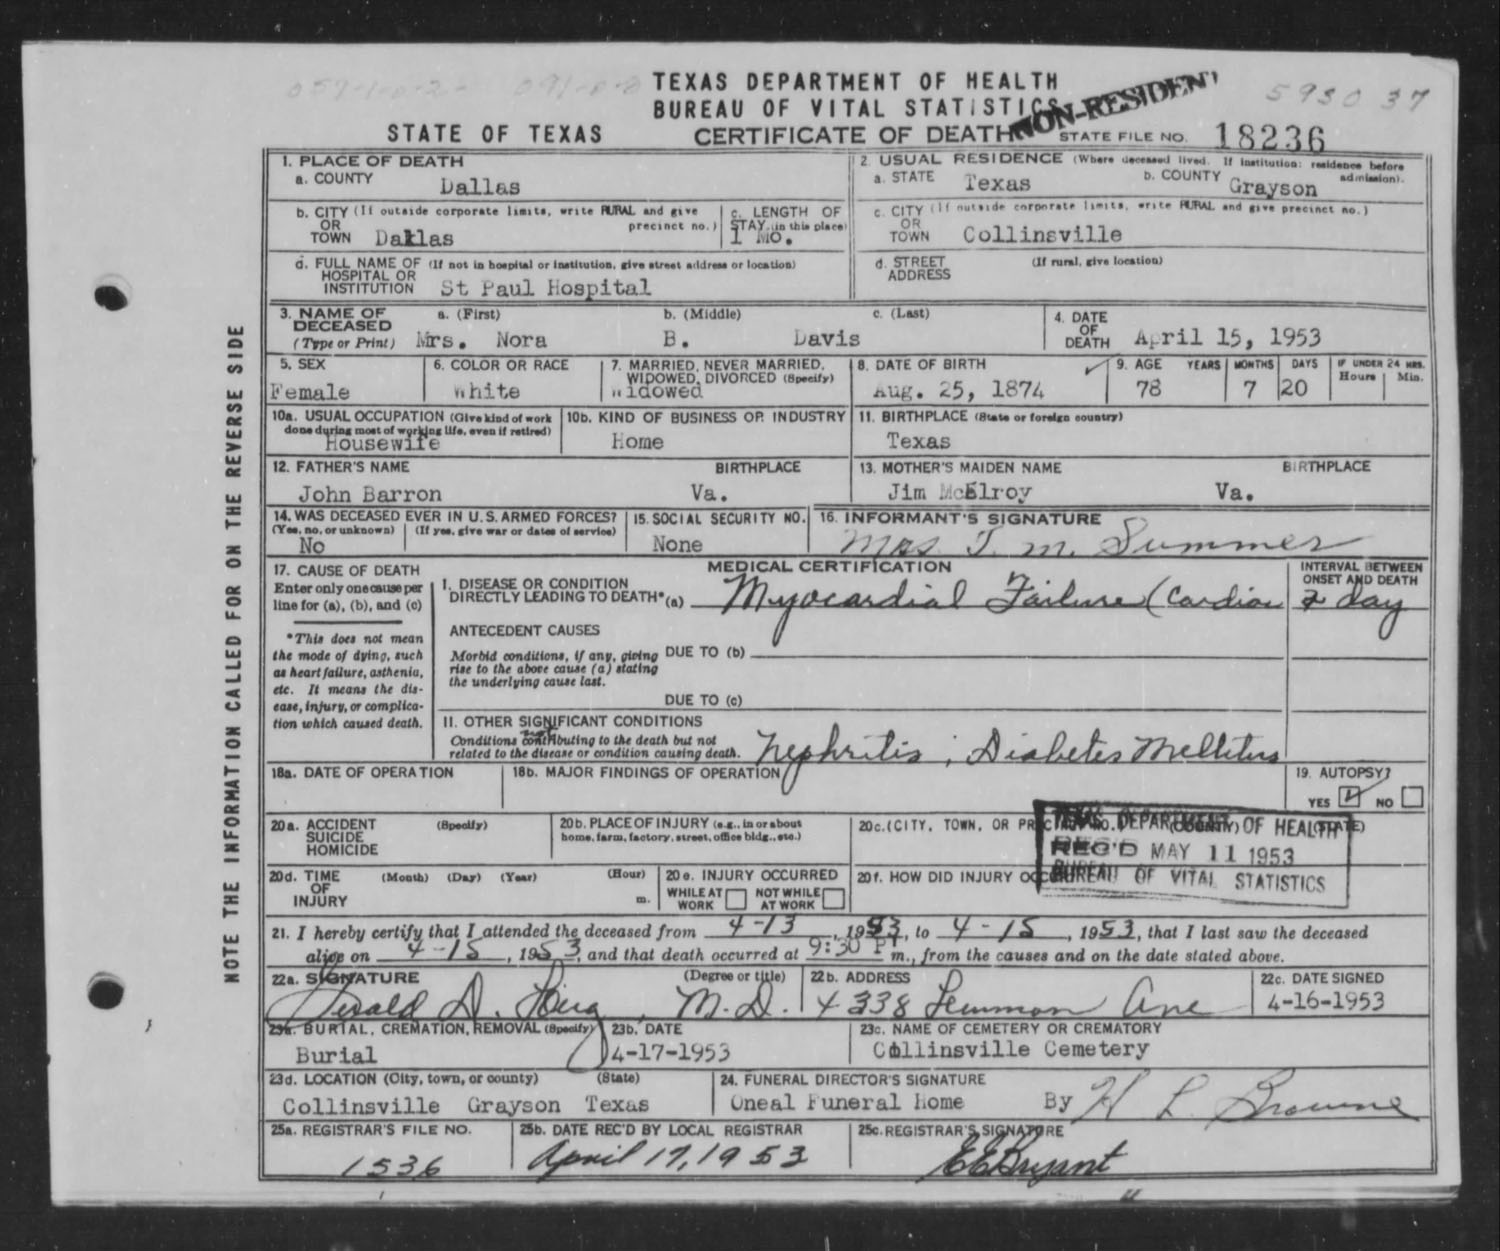 TEXAS DEPARTMENT OF HEALTH
BUREAU OF VITAL STATISTICS
STATE OF TEXAS CERTIFICATE OF DEATH NON-RESIDENT STATE FILE NO. 18236
5930 37
1. PLACE OF DEATH
a. COUNTY Dallas
2. USUAL RESIDENCE (Where deceased lived. If institution: residence before admission).
a. STATE Texas b. COUNTY Grayson
b. CITY (If outside corporate limits, write RURAL and give precinct no.) OR TOWN Dallas
c. LENGTH OF STAY (in this place) 1 MO.
c. CITY (If outside corporate limits, write RURAL and give precinct no.) OR TOWN Collinsville
d. FULL NAME OF (If not in hospital or institution, give street address or location) HOSPITAL OR INSTITUTION St Paul Hospital
d. STREET ADDRESS (If rural, give location)
3. NAME OF DECEASED (Type or Print) a. (First) b. (Middle) c. (Last)
Mrs. Nora B. Davis
4. DATE OF DEATH April 15, 1953
5. SEX Female
6. COLOR OR RACE White
7. MARRIED, NEVER MARRIED, WIDOWED, DIVORCED (Specify) Widowed
8. DATE OF BIRTH Aug. 25, 1874
9. AGE YEARS MONTHS DAYS IF UNDER 24 HRS. Hours Min.
78 7 20
10a. USUAL OCCUPATION (Give kind of work done during most of working life, even if retired) Housewife
10b. KIND OF BUSINESS OR INDUSTRY Home
11. BIRTHPLACE (State or foreign country) Texas
12. FATHER'S NAME BIRTHPLACE
John Barron Va.
13. MOTHER'S MAIDEN NAME BIRTHPLACE
Jim McElroy Va.
14. WAS DECEASED EVER IN U.S. ARMED FORCES? (Yes, no, or unknown) (If yes, give war or dates of service) No
15. SOCIAL SECURITY NO. None
16. INFORMANT'S SIGNATURE Mrs. T. M. Summer
17. CAUSE OF DEATH
Enter only one cause per line for (a), (b), and (c)
*This does not mean the mode of dying, such as heart failure, asthenia, etc. It means the disease, injury, or complication which caused death.
MEDICAL CERTIFICATION
INTERVAL BETWEEN ONSET AND DEATH
I. DISEASE OR CONDITION DIRECTLY LEADING TO DEATH* (a) Myocardial Failure (Cardiac day
ANTECEDENT CAUSES
Morbid conditions, if any, giving rise to the above cause (a) stating the underlying cause last.
DUE TO (b)
DUE TO (c)
II. OTHER SIGNIFICANT CONDITIONS
Conditions contributing to the death but not related to the disease or condition causing death. Nephritis; Diabetes Mellitus
not
18a. DATE OF OPERATION
18b. MAJOR FINDINGS OF OPERATION
19. AUTOPSY? YES NO
20a. ACCIDENT SUICIDE HOMICIDE (Specify)
20b. PLACE OF INJURY (e.g., in or about home, farm, factory, street, office bldg., etc.)
20c. (CITY, TOWN, OR PRECINCT NO.) (COUNTY) (STATE)
TEXAS DEPARTMENT OF HEALTH
REC'D MAY 11 1953
BUREAU OF VITAL STATISTICS
20d. TIME OF INJURY (Month) (Day) (Year) (Hour) m.
20e. INJURY OCCURRED WHILE AT WORK NOT WHILE AT WORK
20f. HOW DID INJURY OCCUR
21. I hereby certify that I attended the deceased from 4-13, 1953, to 4-15, 1953, that I last saw the deceased
alive on 4-15, 1953, and that death occurred at 9:30 P m., from the causes and on the date stated above.
22a. SIGNATURE (Degree or title) Gerald D. King, M.D.
22b. ADDRESS 4338 Lemmon Ave
22c. DATE SIGNED 4-16-1953
23a. BURIAL, CREMATION, REMOVAL (Specify) Burial
23b. DATE 4-17-1953
23c. NAME OF CEMETERY OR CREMATORY Collinsville Cemetery
23d. LOCATION (City, town, or county) (State)
Collinsville Grayson Texas
24. FUNERAL DIRECTOR'S SIGNATURE
Oneal Funeral Home By H L Browne
25a. REGISTRAR'S FILE NO. 1536
25b. DATE REC'D BY LOCAL REGISTRAR April 17, 1953
25c. REGISTRAR'S SIGNATURE EE Bryant
NOTE THE INFORMATION CALLED FOR ON THE REVERSE SIDE